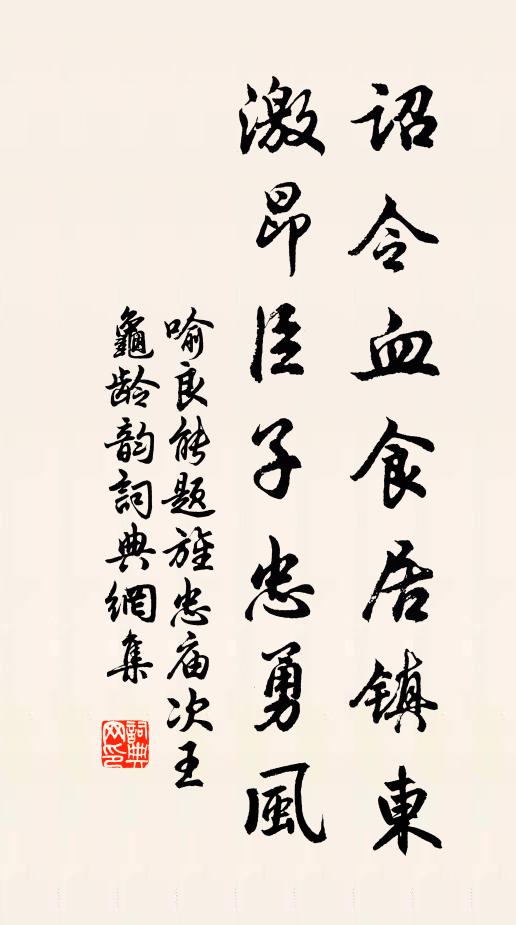 詔令血食居鎮東
激昂臣子忠勇風
喻良能題旌忠庙次王
龜龄韵詞典網集
詞典网印